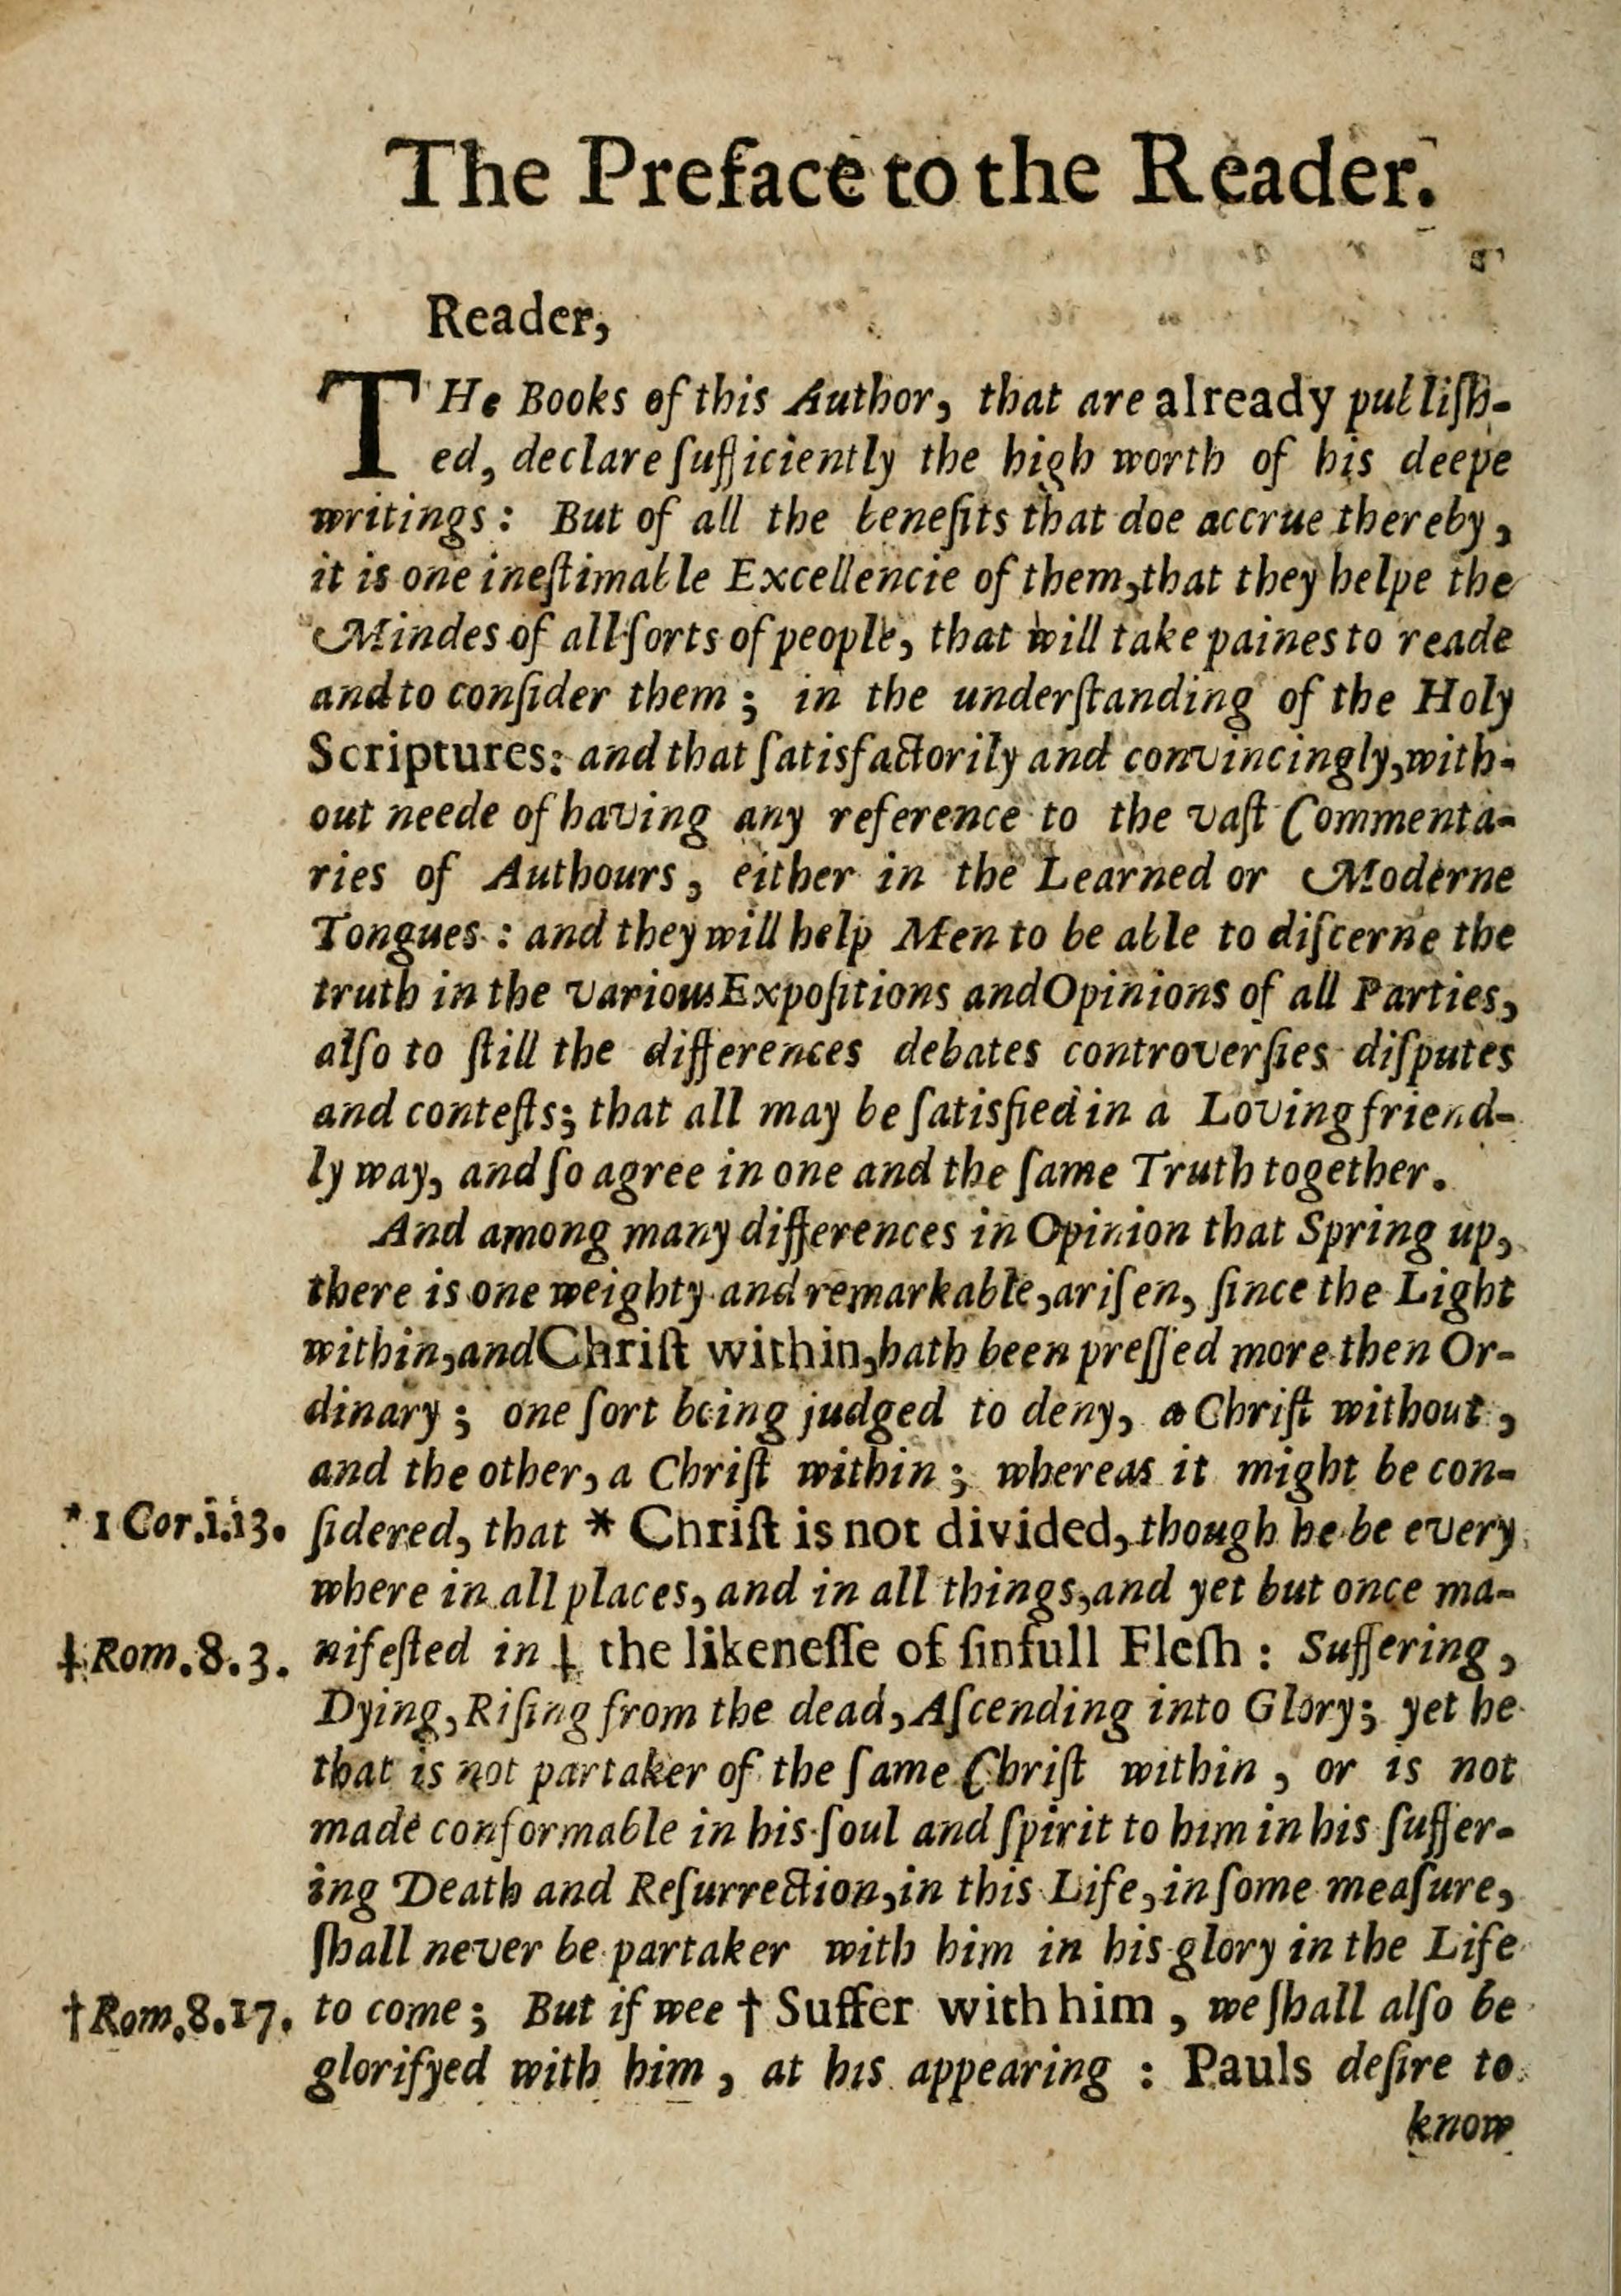 The Preface to the Reader.
Reader,
THe Books of this Author, that are already publiſh-
ed, declare ſufficiently the high worth of his deepe
writings: But of all the benefits that doe accrue thereby,
it is one ineſtimable Excellencie of them, that they helpe the
Mindes of all ſorts of people, that will take paines to reade
and to conſider them; in the underſtanding of the Holy
Scriptures: and that ſatisfactorily and convincingly, with-
out neede of having any reference to the vaſt Commenta-
ries of Authours, either in the Learned or Moderne
Tongues: and they will help Men to be able to diſcerne the
truth in the various Expoſitions and Opinions of all Parties,
alſo to ſtill the differences debates controverſies diſputes
and conteſts; that all may be ſatisfied in a Loving friend-
ly way, and ſo agree in one and the ſame Truth together.
And among many differences in Opinion that Spring up,
there is one weighty and remarkable, ariſen, ſince the Light
within, and Chriſt within, hath been preſſed more then Or-
dinary; one ſort being judged to deny, a Chriſt without,
and the other, a Chriſt within; whereas it might be con-
* 1 Cor.i.i3. ſidered, that * Chriſt is not divided, though he be every
where in all places, and in all things, and yet but once ma-
‡ Rom.8.3. nifeſted in ‡ the likeneſſe of ſinfull Fleſh: Suffering,
Dying, Riſing from the dead, Aſcending into Glory; yet he
that is not partaker of the ſame Chriſt within, or is not
made conformable in his ſoul and ſpirit to him in his ſuffer-
ing Death and Reſurrection, in this Life, in ſome meaſure,
ſhall never be partaker with him in his glory in the Life
† Rom.8.17. to come; But if wee † Suffer with him, we ſhall alſo be
glorifyed with him, at his appearing: Pauls deſire to
know